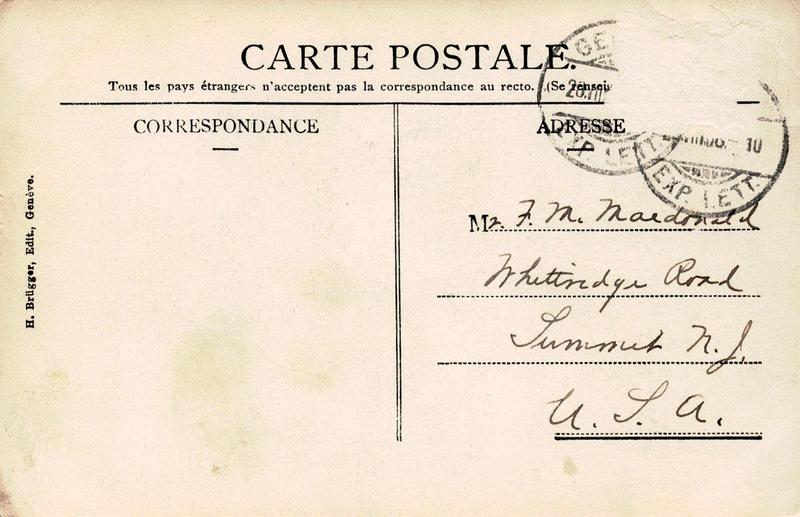 CARTE POSTALE.
Tous les pays étrangers n'acceptent pas la correspondance au recto. (Se
CORRESPONDANCE
ADRESSE
EXP. LETT.
10
EXP. LETT.
Mr. F. M. Macdonald
Whittredge Road
Summit N. J.
U. S. A.
H. Brügger, Edit., Genève.